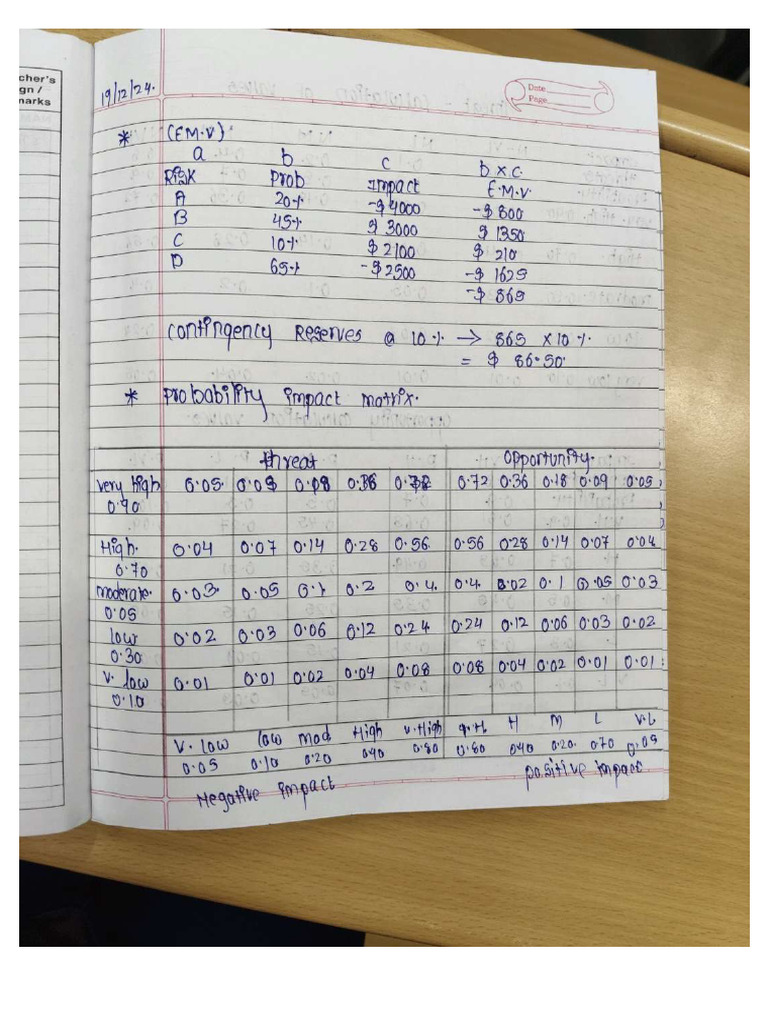 cher's
gn /
marks
19/12/24.
Date
Page
* (E.M.V)
a b c b x c.
Risk Prob Impact E.M.V.
A 20% -$4000 -$800
B 45% $3000 $1350
C 10% $2100 $210
D 65% -$2500 -$1625
-$865
Contingency Reserves @ 10% → 865 x 10%
= $ 86.50.
* Probability impact matrix.
threat opportunity.
very high 0.05 0.09 0.18 0.36 0.72 0.72 0.36 0.18 0.09 0.05
0.90
High. 0.04 0.07 0.14 0.28 0.56 0.56 0.28 0.14 0.07 0.04
0.70
moderate. 0.03 0.05 0.1 0.2 0.4. 0.4. 0.02 0.1 0.05 0.03
0.05
low 0.02 0.03 0.06 0.12 0.24 0.24 0.12 0.06 0.03 0.02
0.30
V. low 0.01 0.01 0.02 0.04 0.08 0.08 0.04 0.02 0.01 0.01
0.10
V. low low mod High v.High H M L V.L
0.05 0.10 0.20 0.40 0.80 0.80 0.40 0.20 0.70 0.05
Negative impact positive impact